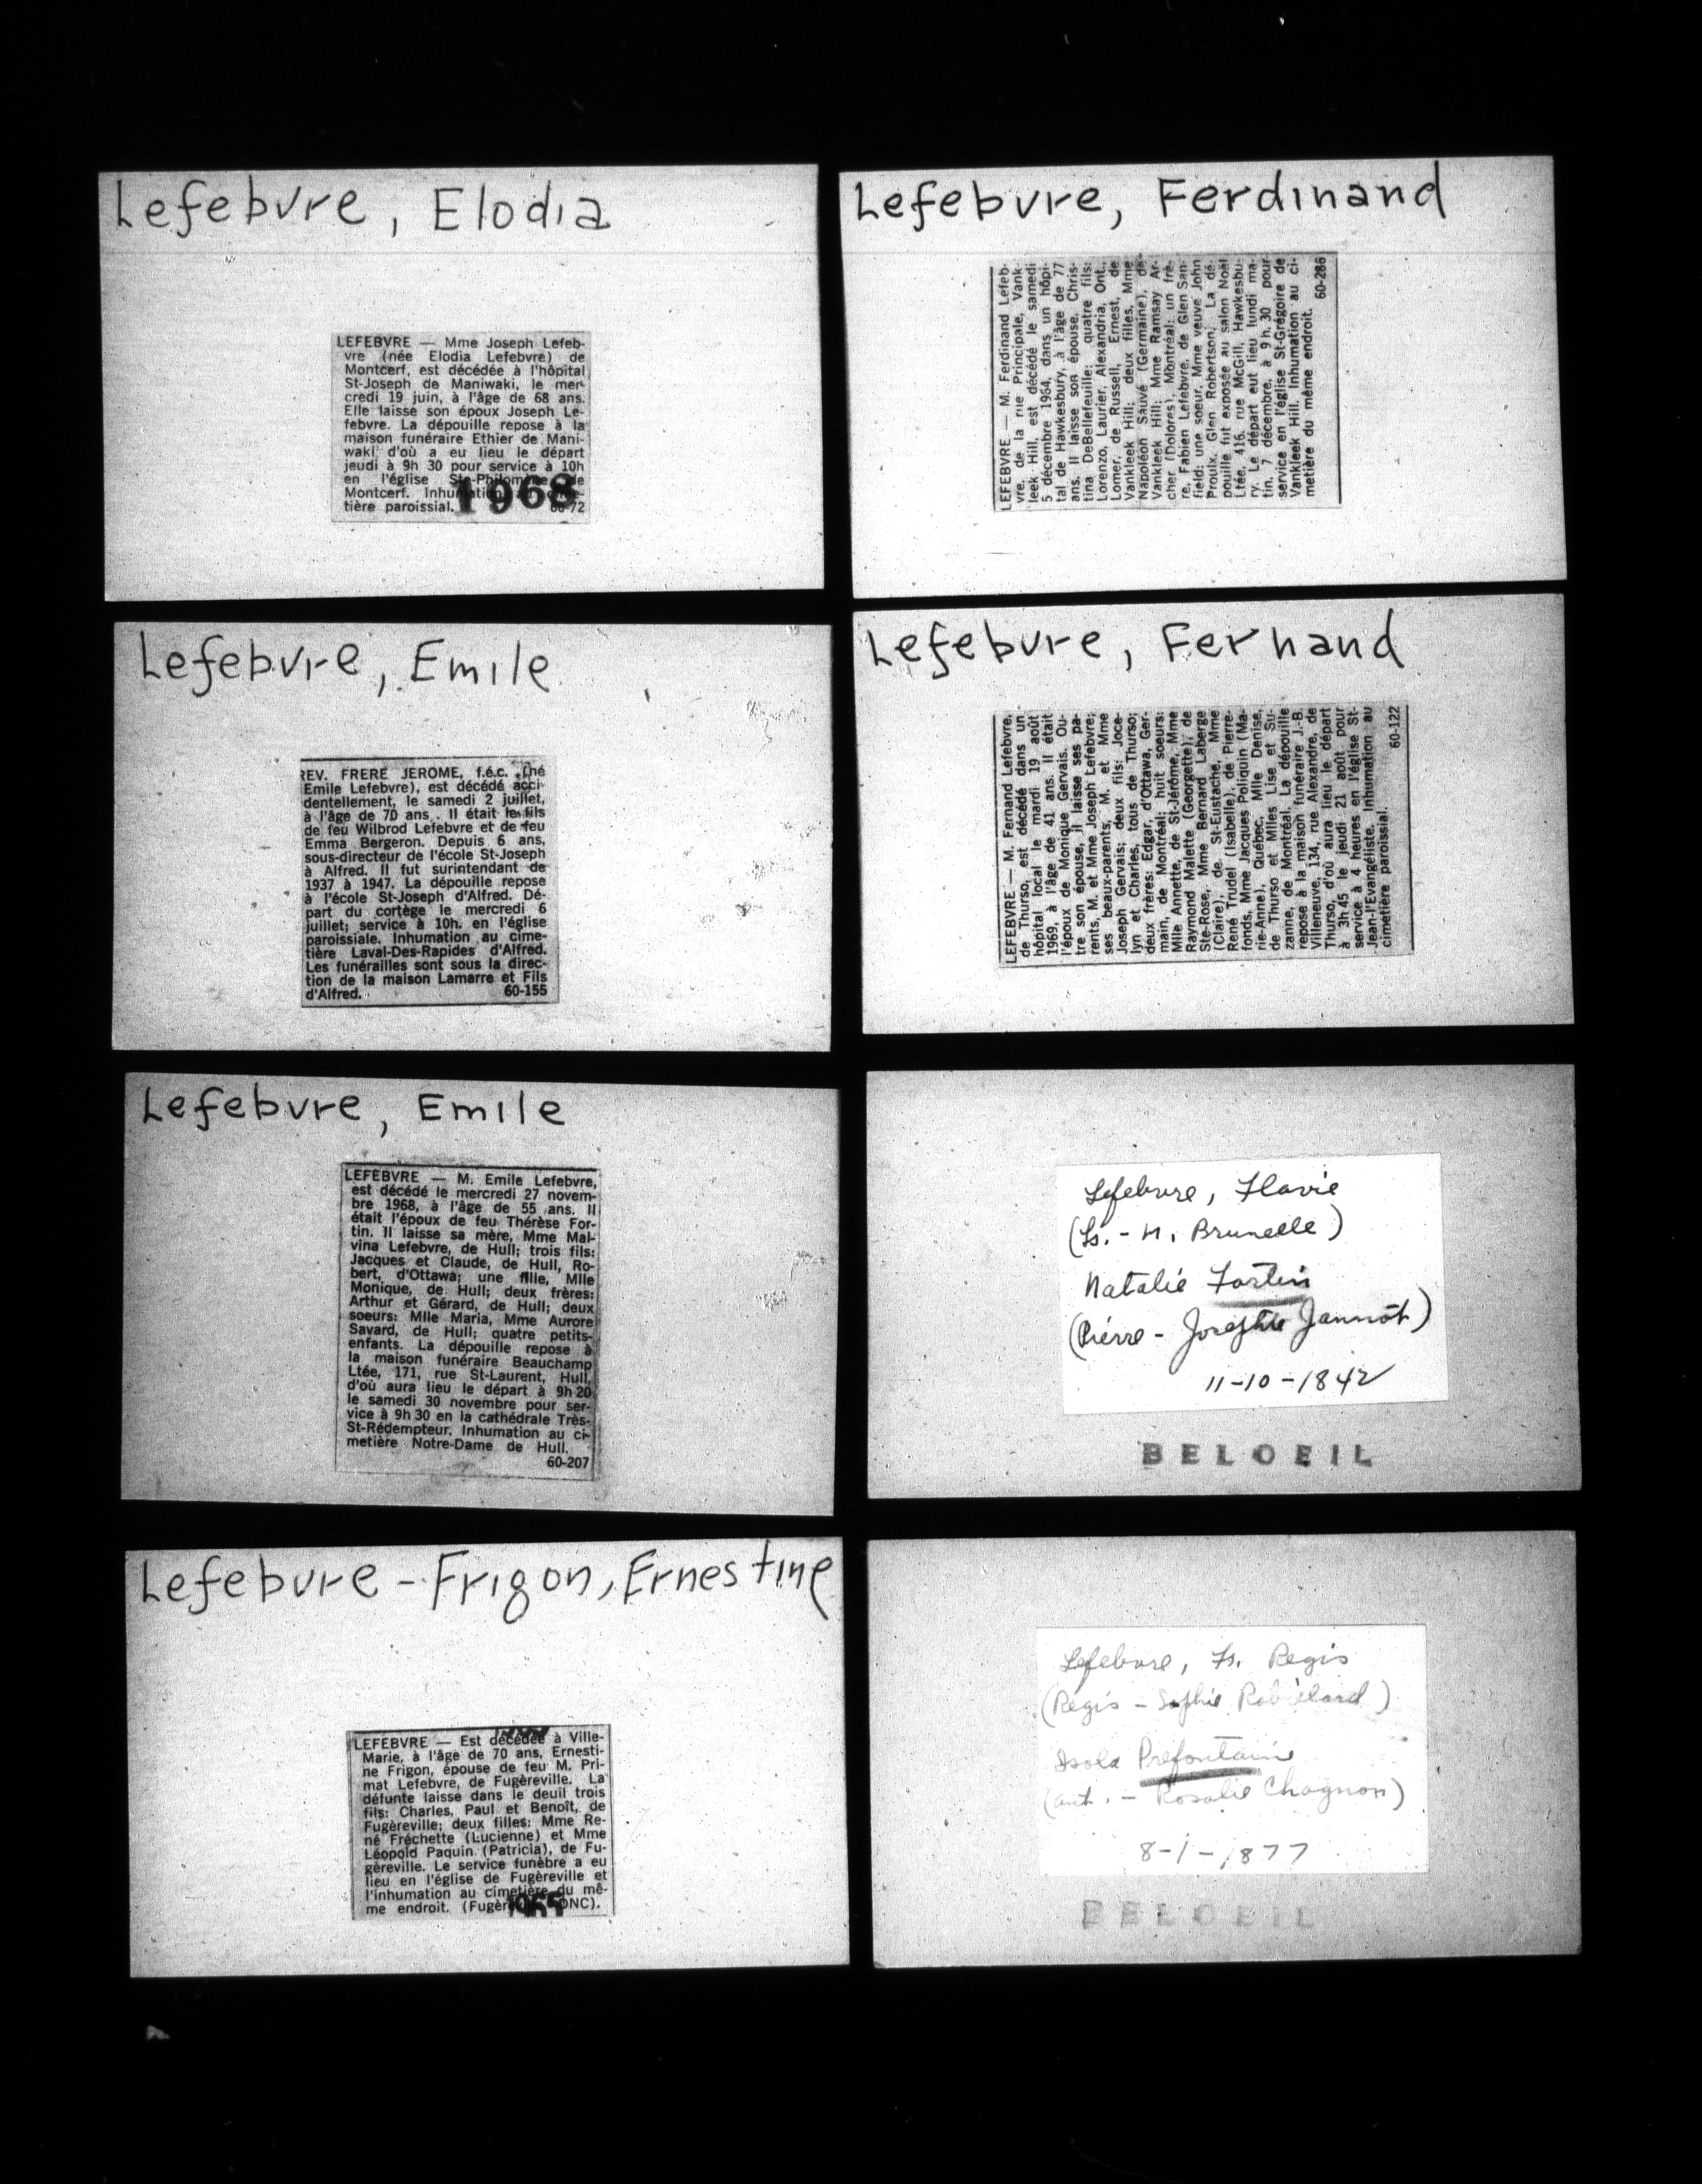 Lefebvre, Elodia
LEFEBVRE — Mme Joseph Lefeb-
vre (née Elodia Lefebvre) de
Montcerf, est décédée à l'hôpital
St-Joseph de Maniwaki, le mer-
credi 19 juin, à l'âge de 68 ans.
Elle laisse son époux Joseph Le-
febvre. La dépouille repose à la
maison funéraire Ethier de Mani-
waki d'où a eu lieu le départ
jeudi à 9h 30 pour service à 10h
en l'église Ste-Philomène de
Montcerf. Inhumation au cime-
tière paroissial.
1968
Lefebvre, Emile
REV. FRERE JEROME, f.é.c. (né
Emile Lefebvre), est décédé acci-
dentellement, le samedi 2 juillet,
à l'âge de 70 ans. Il était le fils
de feu Wilbrod Lefebvre et de feu
Emma Bergeron. Depuis 6 ans,
sous-directeur de l'école St-Joseph
à Alfred. Il fut surintendant de
1937 à 1947. La dépouille repose
à l'école St-Joseph d'Alfred. Dé-
part du cortège le mercredi 6
juillet; service à 10h. en l'église
paroissiale. Inhumation au cime-
tière Laval-Des-Rapides d'Alfred.
Les funérailles sont sous la direc-
tion de la maison Lamarre et Fils
d'Alfred. 60-155
Lefebvre, Emile
LEFEBVRE — M. Emile Lefebvre,
est décédé le mercredi 27 novem-
bre 1968, à l'âge de 55 ans. Il
était l'époux de feu Thérèse For-
tin. Il laisse sa mère, Mme Mal-
vina Lefebvre, de Hull; trois fils:
Jacques et Claude, de Hull, Ro-
bert, d'Ottawa; une fille, Mlle
Monique, de Hull; deux frères:
Arthur et Gérard, de Hull; deux
soeurs: Mlle Maria, Mme Aurore
Savard, de Hull; quatre petits-
enfants. La dépouille repose à
la maison funéraire Beauchamp
Ltée, 171, rue St-Laurent, Hull,
d'où aura lieu le départ à 9h 20
le samedi 30 novembre pour ser-
vice à 9h 30 en la cathédrale Très-
St-Rédempteur. Inhumation au ci-
metière Notre-Dame de Hull.
60-207
Lefebvre-Frigon, Ernestine
LEFEBVRE — Est décédée à Ville-
Marie, à l'âge de 70 ans, Ernesti-
ne Frigon, épouse de feu M. Pri-
mat Lefebvre, de Fugèreville. La
défunte laisse dans le deuil trois
fils: Charles, Paul et Benoît, de
Fugèreville; deux filles: Mme Re-
né Fréchette (Lucienne) et Mme
Léopold Paquin (Patricia), de Fu-
gèreville. Le service funèbre a eu
lieu en l'église de Fugèreville et
l'inhumation au cimetière du mê-
me endroit. (Fugèreville DNC).
1965
Lefebvre, Ferdinand
LEFEBVRE — M. Ferdinand Lefeb-
vre, de la rue Principale, Vank-
leek Hill, est décédé le samedi
5 décembre 1964, dans un hôpi-
tal de Hawkesbury, à l'âge de 77
ans. Il laisse son épouse, Chris-
tina DeBellefeuille; quatre fils:
Lorenzo, Laurier, Alexandria, Ont.,
Lomer, de Russell, Ernest, de
Vankleek Hill; deux filles, Mme
Napoléon Sauvé (Germaine), de
Vankleek Hill; Mme Ramsay Ar-
cher (Dolores), Montréal; un frè-
re, Fabien Lefebvre, de Glen San-
field; une soeur, Mme veuve John
Proulx, Glen Robertson. La dé-
pouille fut exposée au salon Noël
Ltée, 416, rue McGill, Hawkesbu-
ry. Le départ eut lieu lundi ma-
tin, 7 décembre, à 9 h. 30 pour
service en l'église St-Grégoire de
Vankleek Hill. Inhumation au ci-
metière du même endroit.
60-286
Lefebvre, Fernand
LEFEBVRE — M. Fernand Lefebvre,
de Thurso, est décédé dans un
hôpital local le mardi 19 août
1969, à l'âge de 41 ans. Il était
l'époux de Monique Gervais. Ou-
tre son épouse, il laisse ses pa-
rents, M. et Mme Joseph Lefebvre;
ses beaux-parents, M. et Mme
Joseph Gervais; deux fils: Joce-
lyn et Charles, tous de Thurso;
deux frères: Edgar, d'Ottawa, Ger-
main, de Montréal; huit soeurs:
Mlle Annette, de St-Jérôme, Mme
Raymond Malette (Georgette), de
Ste-Rose, Mme Bernard Laberge
(Claire), de St-Eustache, Mme
René Trudel (Isabelle), de Pierre-
fonds, Mme Jacques Poliquin (Ma-
rie-Anne), Québec, Mlle Denise,
de Thurso et Mlles Lise et Su-
zanne, de Montréal. La dépouille
repose à la maison funéraire J.-B.
Villeneuve, 134, rue Alexandre, de
Thurso, d'où aura lieu le départ
à 3h 45 le jeudi 21 août pour
service à 4 heures en l'église St-
Jean-l'Evangéliste. Inhumation au
cimetière paroissial.
60-122
Lefebvre, Flavie
(Ls. - M. Brunelle)
Natalie Fortin
(Pierre - Josephte Jannot)
11-10-1842
BELOEIL
Lefebvre, Fs. Regis
(Regis - Sophie Robillard)
Isola Prefontaine
(ant. - Rosalie Chagnon)
8-1-1877
BELOEIL